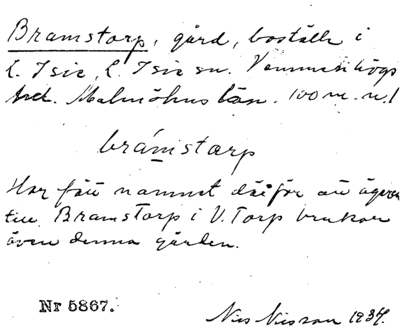 Bramstorp, gård, boställe i
L. Isie, L. Isie sn. Vemmenhögs
hrd. Malmöhus län. 100 m. n.l
brámstarp
Har fått namnet därför att ägaren
till Bramstorp i V. Torp brukar
även denna gården.
Nr 5867.
Nils Nilsson 1934.